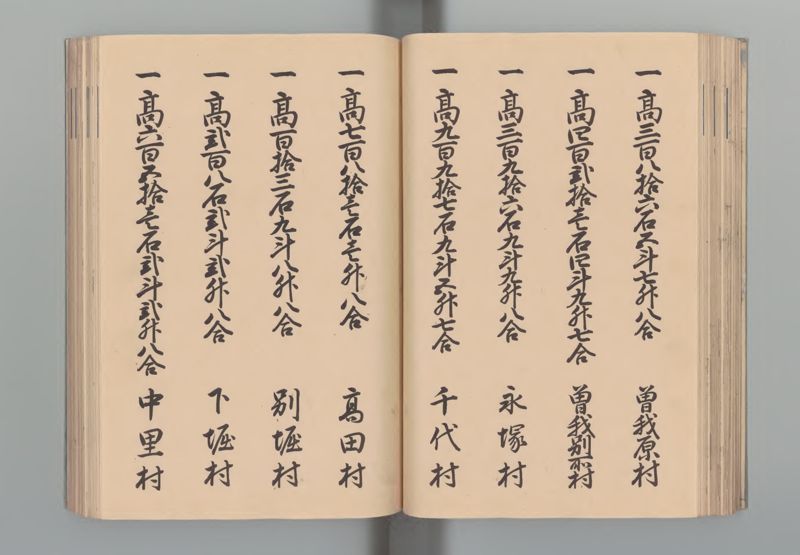 一高三百八拾六石五斗七升八合 曽我原村
一高四百弐拾壱石四斗九升七合 曽我別所村
一高三百九拾六石九斗九升八合 永塚村
一高九百九拾七石九斗五升七合 千代村
一高七百八拾壱石壱升八合 高田村
一高百拾三石九斗八升八合 別堀村
一高弐百八石弐斗弐升八合 下堀村
一高六百五拾壱石弐斗弐升八合 中里村